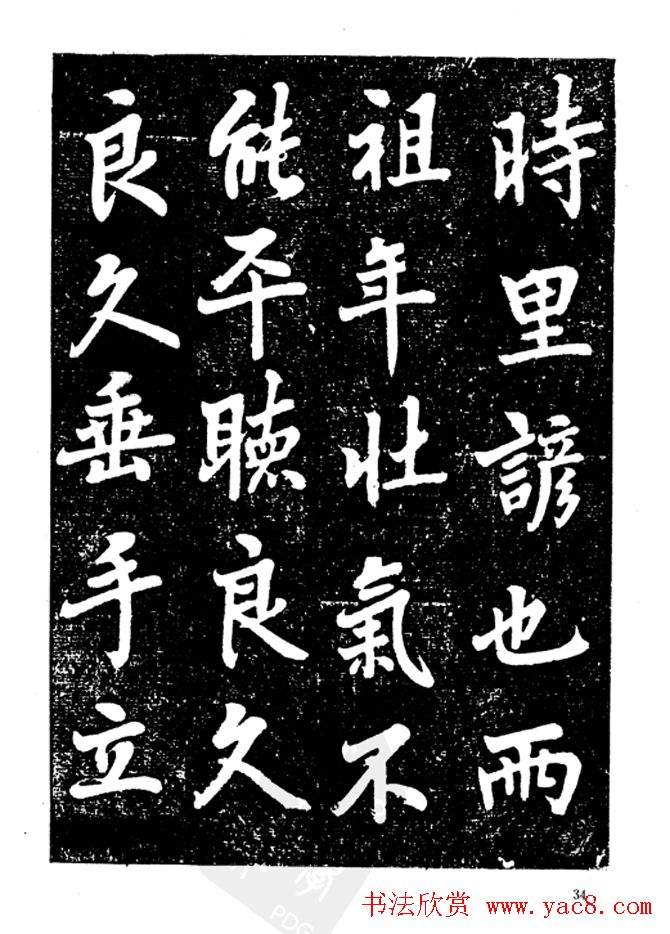 時里諺也而
祖年壯氣不
能平聴良久
良久垂手立
34
书法欣赏 www.yac8.com
PDG